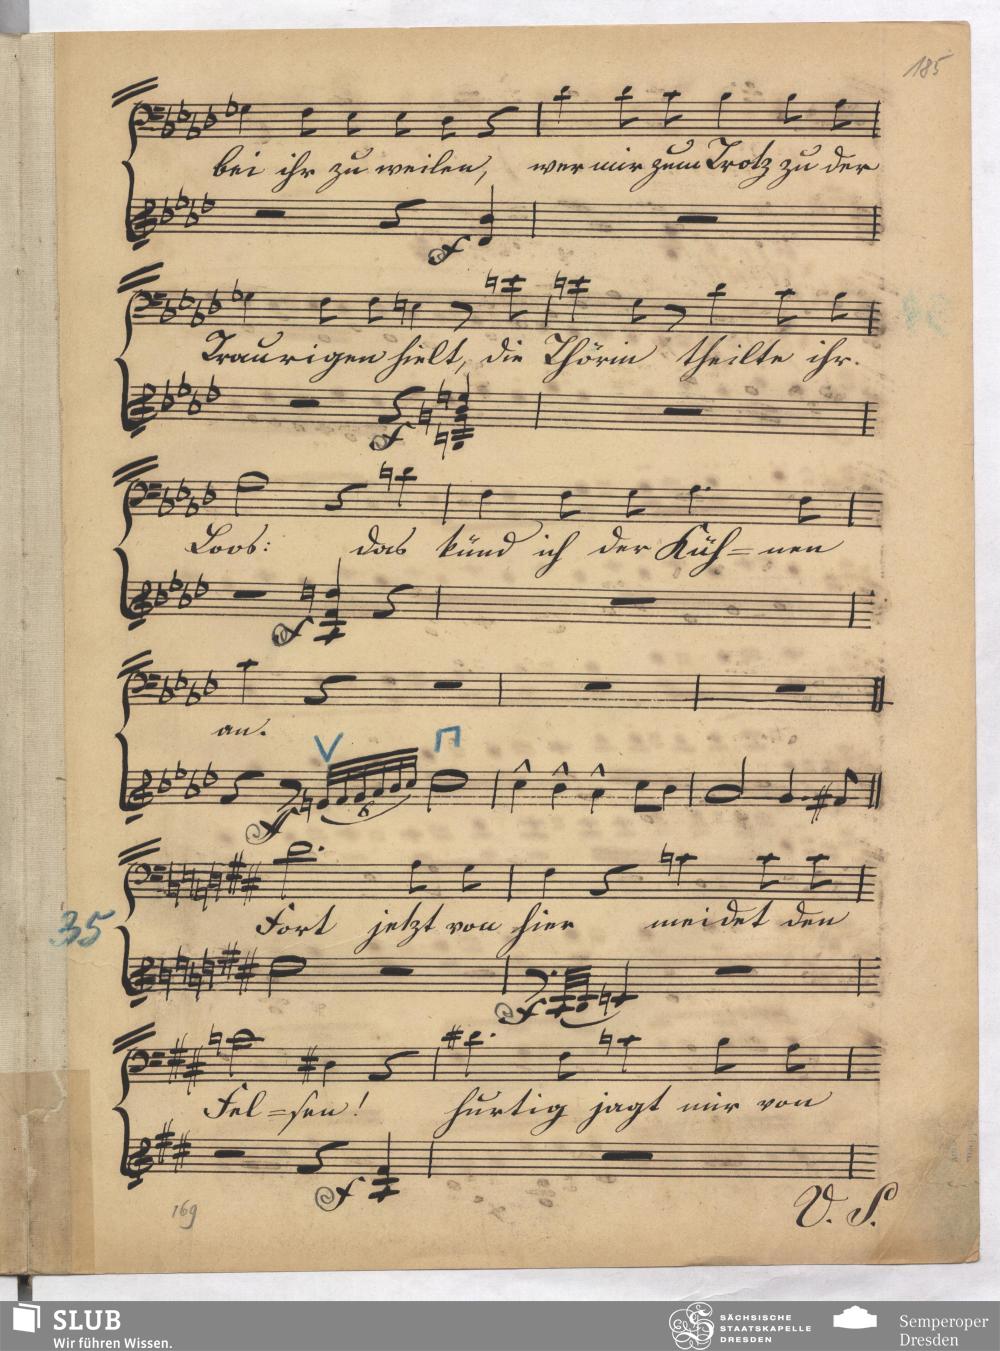 185
bei ihr zu weilen, wer mir zum Trotz zu der
f
Traurigen hielt, die Thörin theilte ihr.
f
Loos: das künd ich der Küh=nen
f
an.
f
6
35
Fort jetzt von hier meidet den
f
Fel=sen! hurtig jagt mir von
f
169
V. S.
SLUB
Wir führen Wissen.
SÄCHSISCHE
STAATSKAPELLE
DRESDEN
Semperoper
Dresden